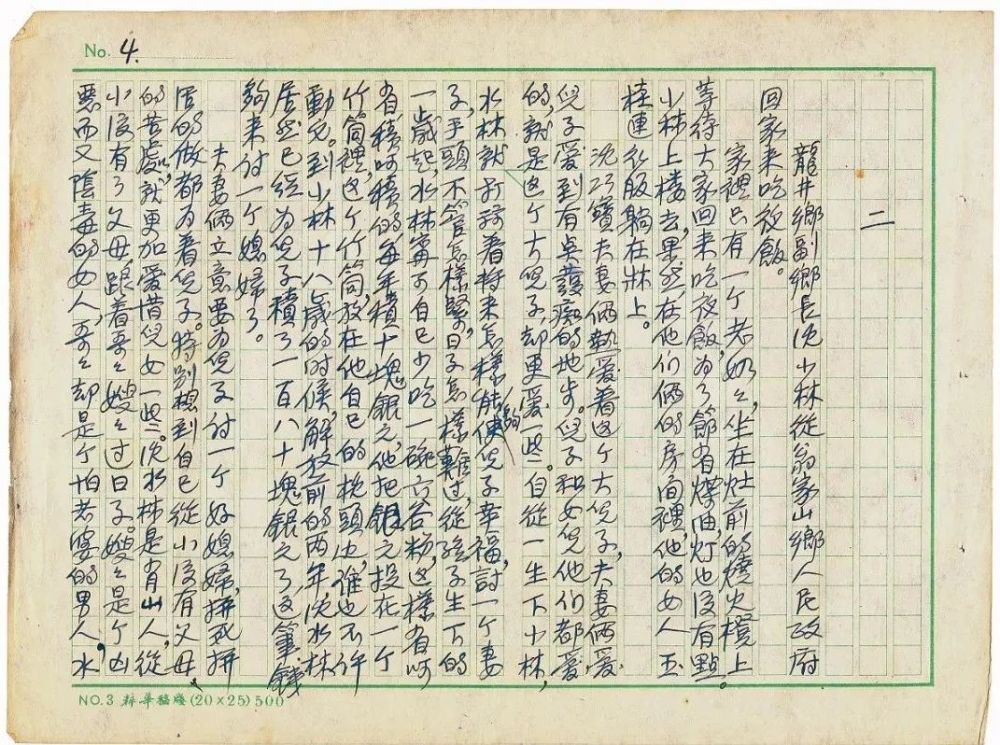 No. 4.
二
龍井鄉副鄉長沈小林從翁家山鄉人民政府
回家来吃夜飯。
家裡只有一个老奶々,坐在灶前的燒火櫈上
等待大家回来吃夜飯,为了節省煤油,灯也没有點。
小林上楼去,果然在他们俩的房间裡,他的女人玉
桂連衣服躺在牀上。
沈巧寶夫妻俩熱爱着这个大兒子,夫妻俩爱
兒子爱到有点護痴的地步。兒子和女兒他们都爱
的,就是这个大兒子却更爱一些。自從一生下小林,
水林就打算着将来怎樣能够使兒子幸福,討一个妻
子,手頭不管怎樣緊,日子怎樣難过,從孩子生下的
一歲起,水林寧可自己少吃一碗六谷粉,这樣省呵
省,積呵積的,每年積十塊銀元,他把銀元投在一个
竹筒裡,这个竹筒放在他自己的枕頭边,谁也不许
動它。到小林十八歲的时候,解放前的两年,沈水林
居然已經为兒子積了一百八十塊銀元了,这筆錢
夠来付一个媳婦了。
夫妻俩立意要为兒子付一个好媳婦,拼死拼
活的做都为着兒子。特别想到自己從小没有父母
的苦處,就更加爱惜兒女一些。沈水林是肖山人,從
小没有了父母,跟着哥々嫂々过日子。嫂々是个凶
惡而又陰毒的女人,哥々却是个怕老婆的男人,水
NO.3 稿牋(20×25)500